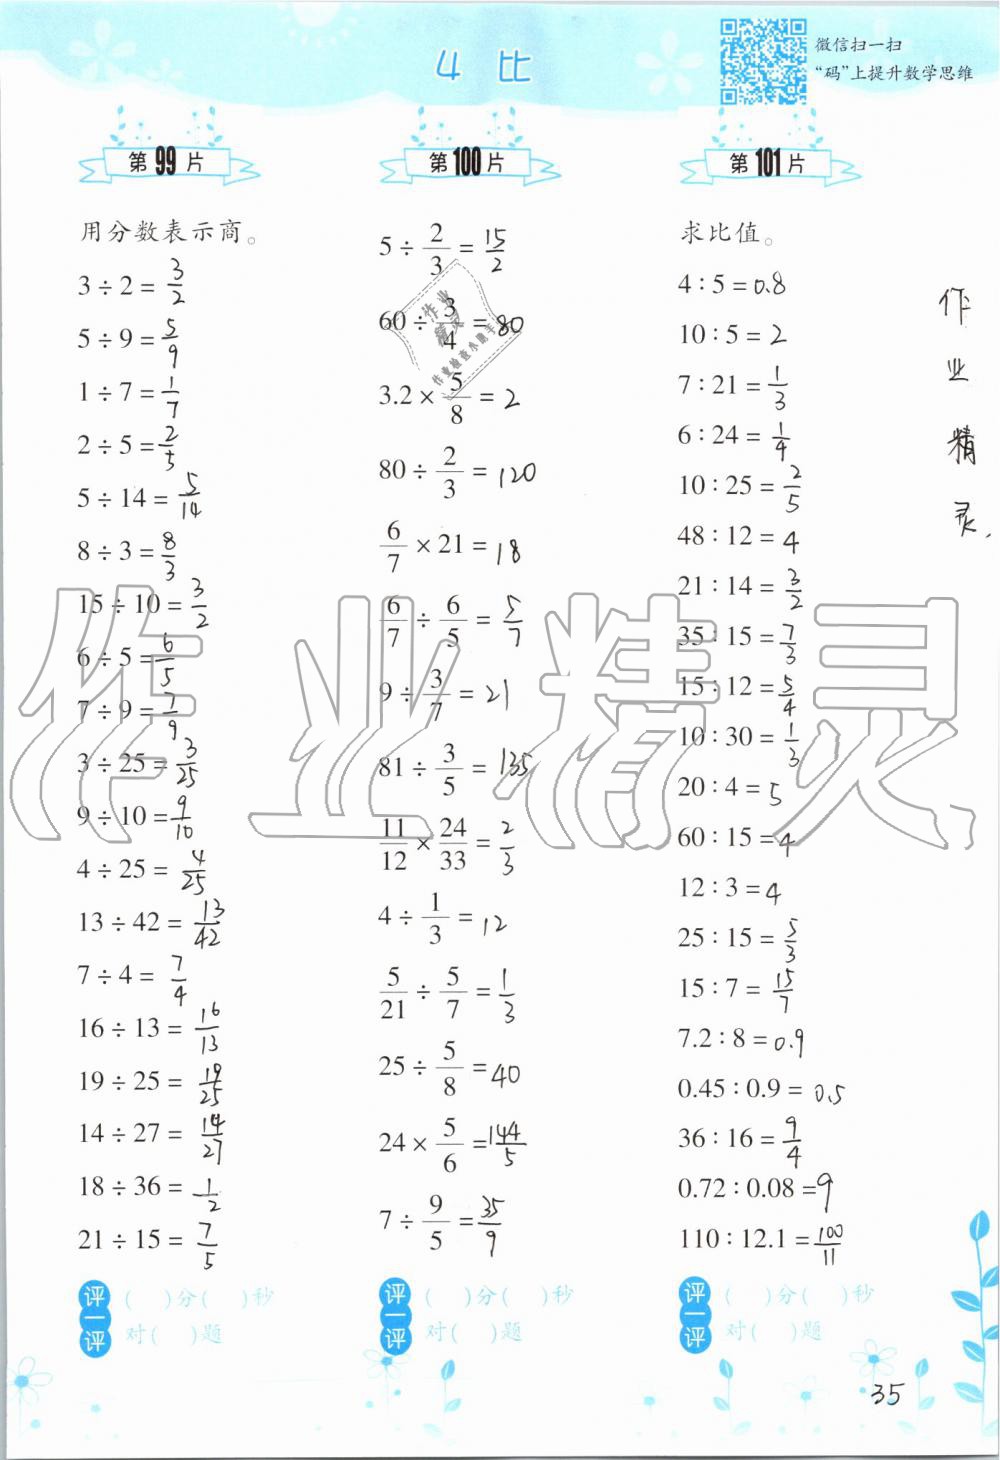 4 比
微信扫一扫
“码”上提升数学思维
第99片
用分数表示商。
3÷2=3/2
5÷9=5/9
1÷7=1/7
2÷5=2/5
5÷14=5/14
8÷3=8/3
15÷10=3/2
6÷5=6/5
7÷9=7/9
3÷25=3/25
9÷10=9/10
4÷25=4/25
13÷42=13/42
7÷4=7/4
16÷13=16/13
19÷25=19/25
14÷27=14/27
18÷36=1/2
21÷15=7/5
评一评
( )分( )秒
对( )题
第100片
5÷2/3=15/2
60÷3/4=80
3.2×5/8=2
80÷2/3=120
6/7×21=18
6/7÷6/5=5/7
9÷3/7=21
81÷3/5=135
11/12×24/33=2/3
4÷1/3=12
5/21÷5/7=1/3
25÷5/8=40
24×5/6=144/5
7÷9/5=35/9
评一评
( )分( )秒
对( )题
第101片
求比值。
4:5=0.8
10:5=2
7:21=1/3
6:24=1/4
10:25=2/5
48:12=4
21:14=3/2
35:15=7/3
15:12=5/4
10:30=1/3
20:4=5
60:15=4
12:3=4
25:15=5/3
15:7=15/7
7.2:8=0.9
0.45:0.9=0.5
36:16=9/4
0.72:0.08=9
110:12.1=100/11
评一评
( )分( )秒
对( )题
作业精灵
作业精灵
作业
精灵
作业检查小助手
35